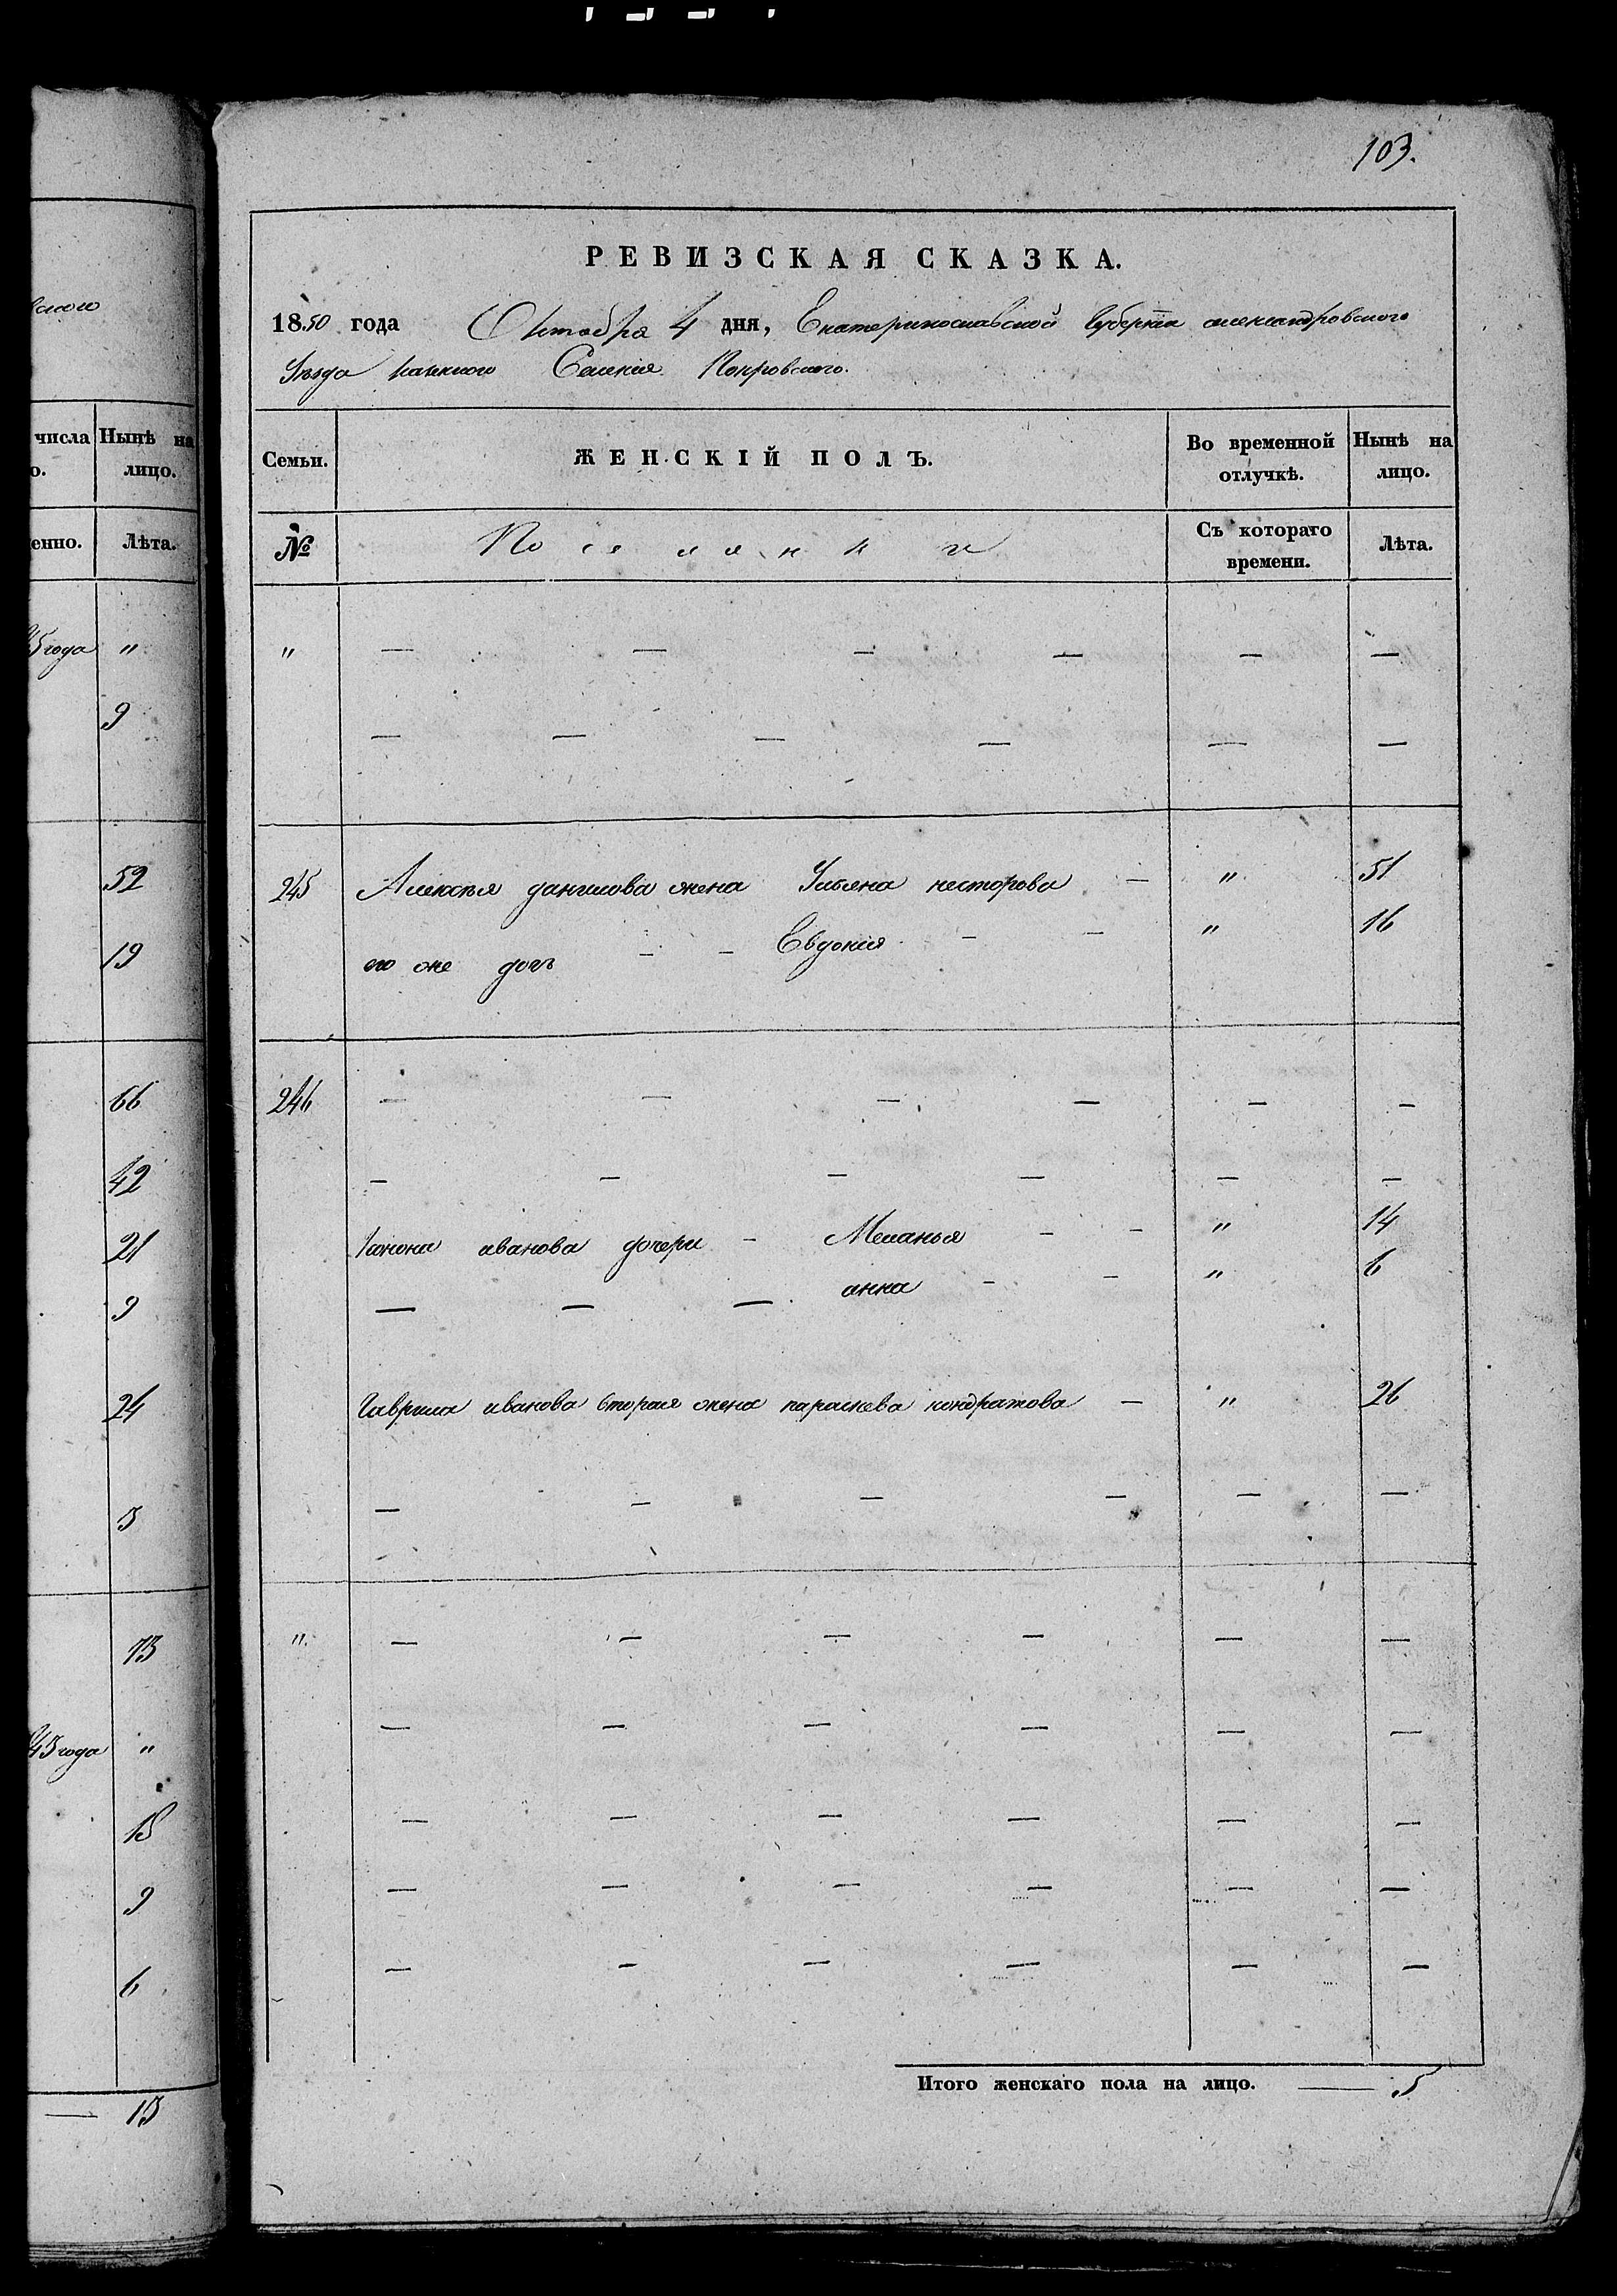 вского
числа Нынѣ на
о. лицо.
енно. Лѣта.
45 года "
9
52
19
66
42
21
9
24
3
73
43 года "
18
9
6
— 13
103.
РЕВИЗСКАЯ СКАЗКА.
1850 года Октября 4 дня, Екатеринославской Губернiи александровского
Уѣзда казенного Селенiя Покровского.
Семьи. ЖЕНСКІЙ ПОЛЪ. Во временной отлучкѣ. Нынѣ на лицо.
№ Поселянки Съ котораго времени. Лѣта.
" — — — — — —
— — — — — —
245 Алексѣя данилова жена Ульяна несторова — " 51
его же дочь — — Евдокия — — " 16
246 — — — — — —
— — — — — —
Конона иванова дочери — Меланья — — " 14
— — — анна — — " 6
Гаврила иванова вторая жена параскева кондратова — " 26
— — — — — —
" — — — — — —
— — — — — —
— — — — — —
— — — — — —
— — — — — —
Итого женскаго пола на лицо. — 5